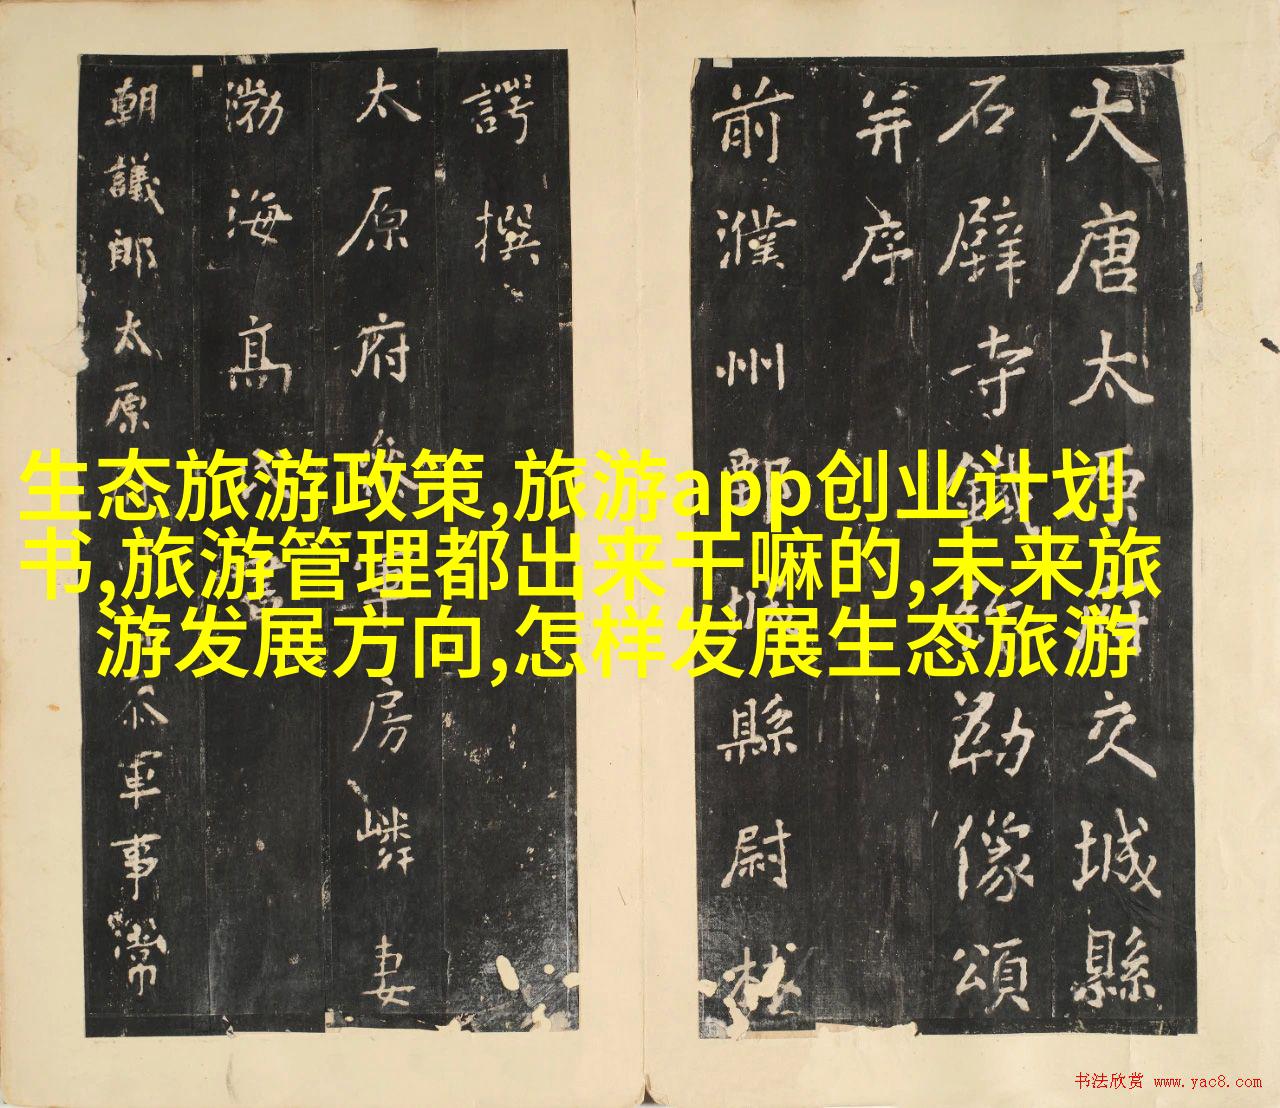 大唐太原府交城縣
石壁寺鐵弥勒像頌
并序
前濮州鄄城縣尉林
諤撰
太原府参軍房嶙妻
渤海高氏書
朝議郎太原
叅軍事常
生态旅游政策,旅游app创业计划
书,旅游管理都出来干嘛的,未来旅
游发展方向,怎样发展生态旅游
书法欣赏 www.yac8.com